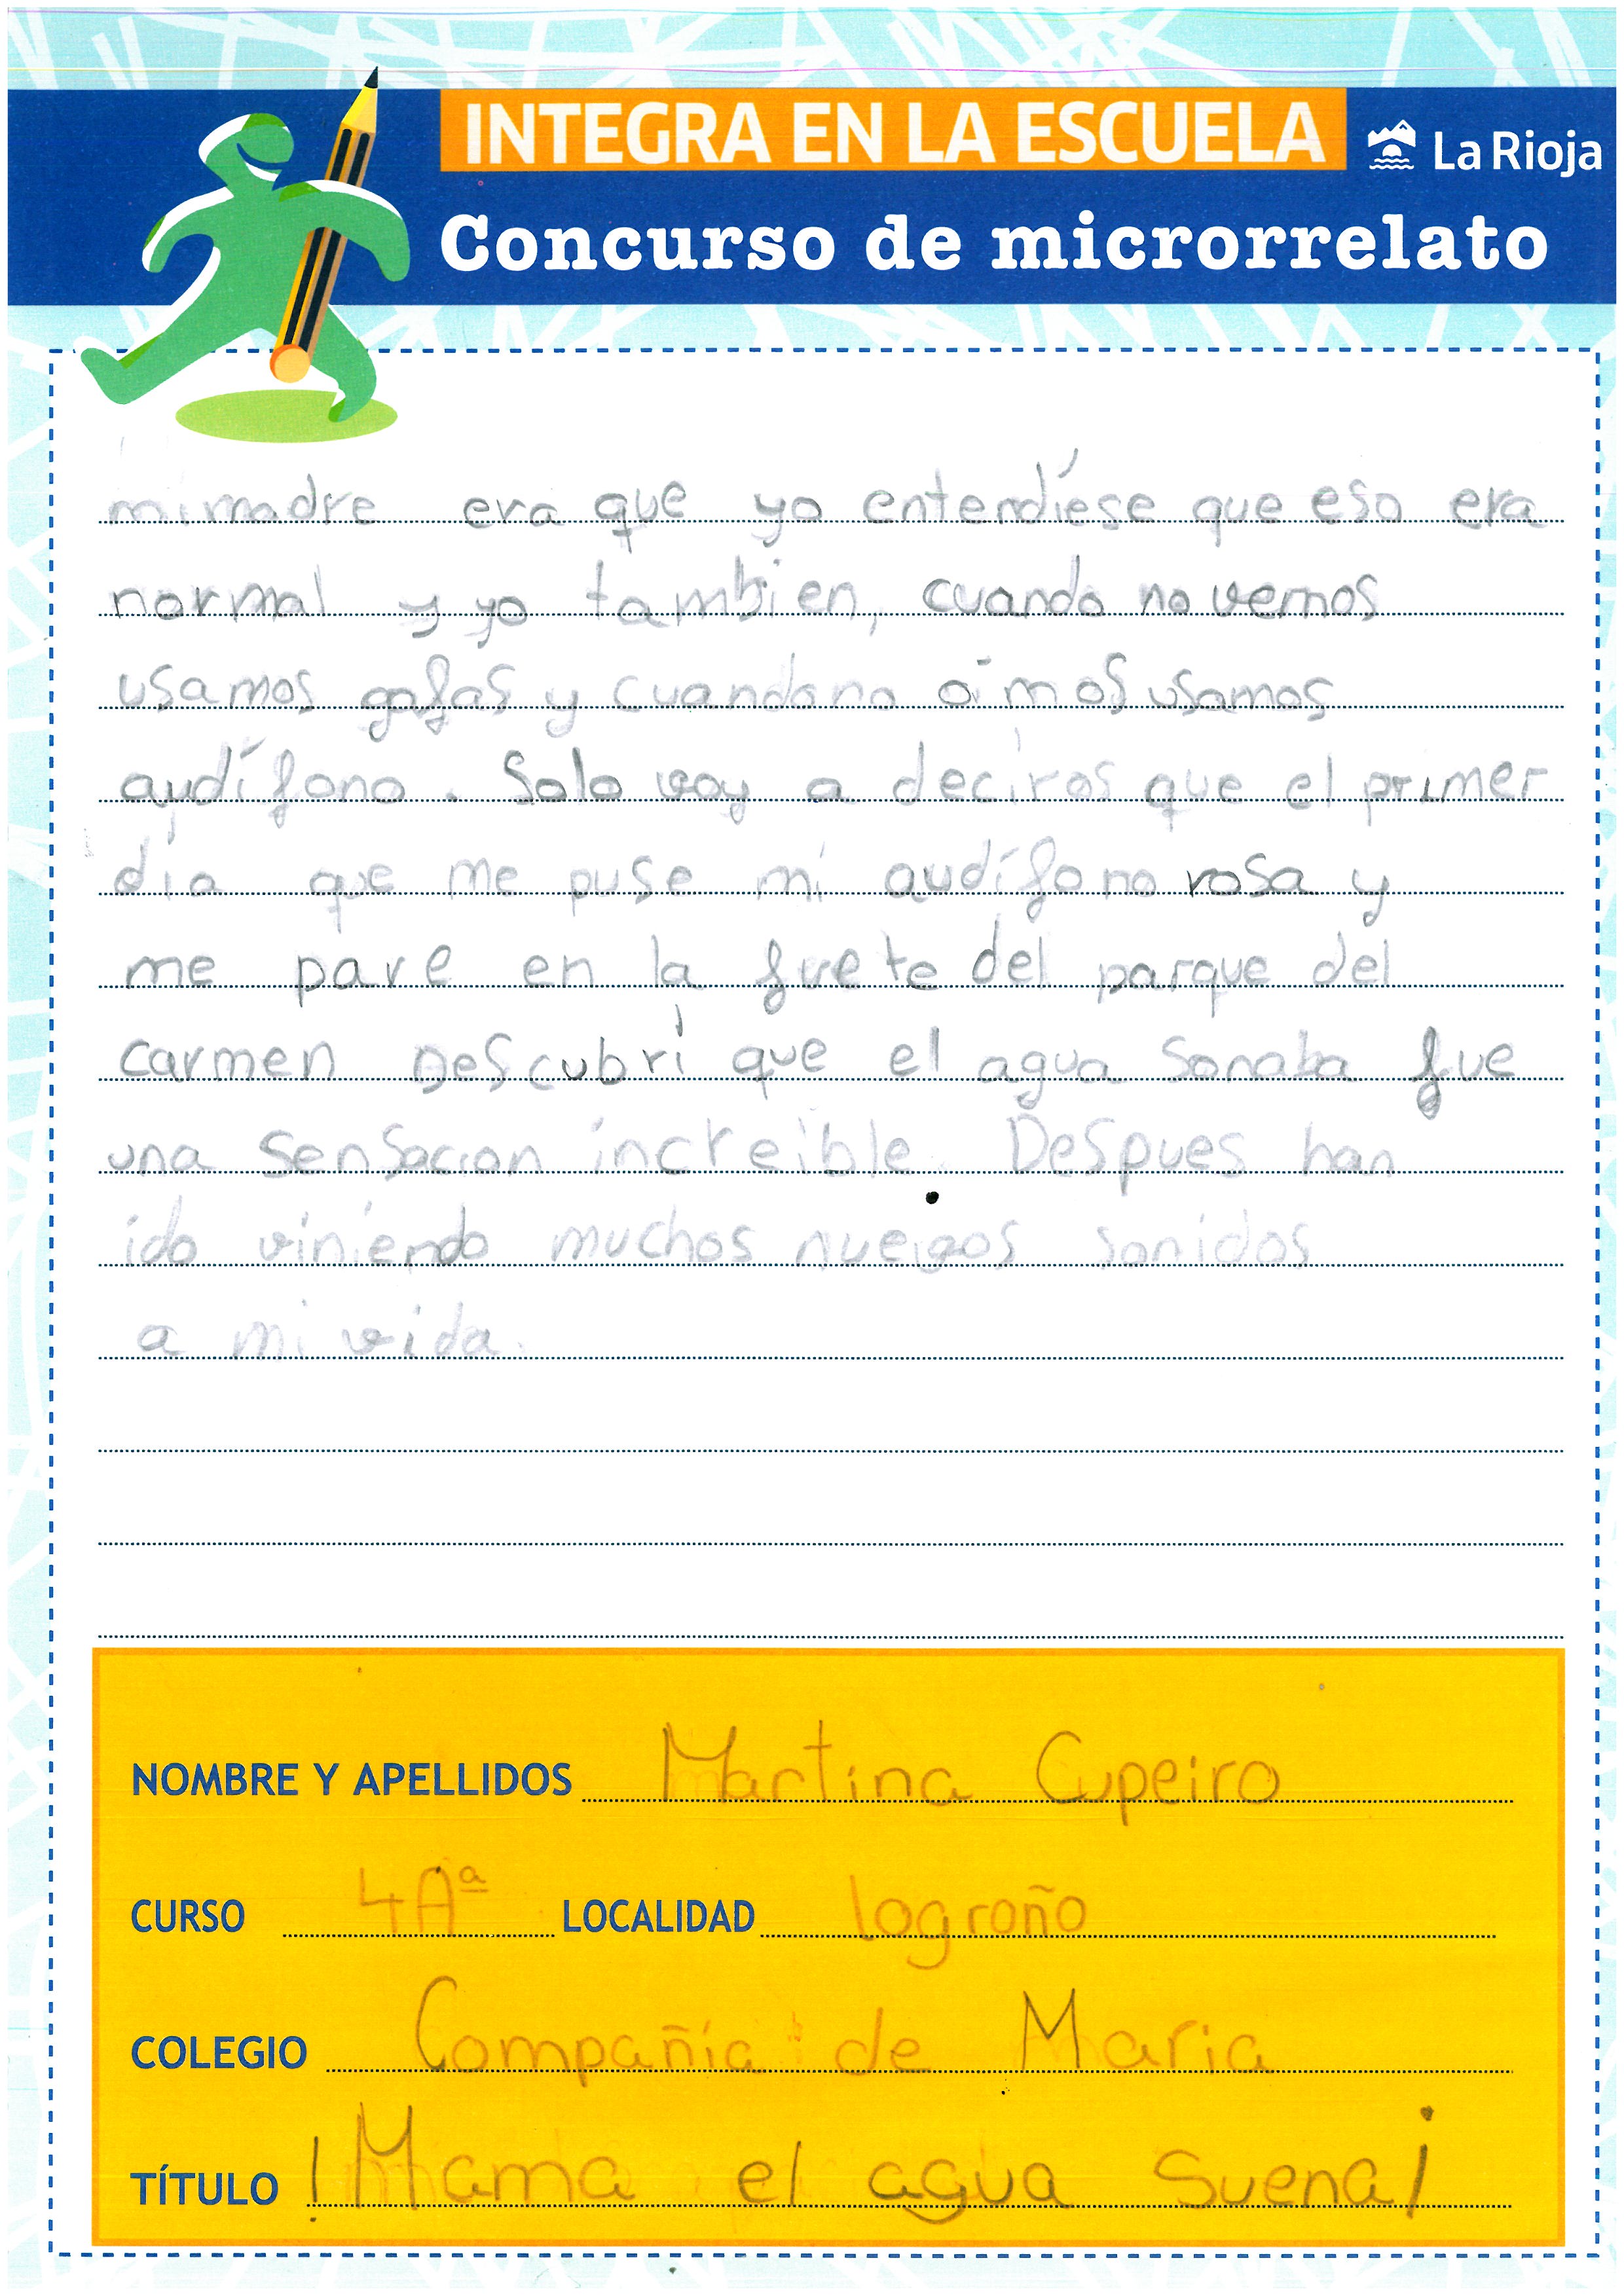 INTEGRA EN LA ESCUELA
La Rioja
Concurso de microrrelato
mi madre era que yo entendíese que eso era
normal y yo tambien, cuando no vemos
usamos gafas y cuando no oimos usamos
audífono. Solo voy a deciros que el primer
dia que me puse mi audífono rosa y
me pare en la fuete del parque del
carmen Descubrí que el agua sonaba fue
una sensacion increible. Despues han
ido viniendo muchos nuevos sonidos
a mi vida.
NOMBRE Y APELLIDOS Martina Cupeiro
CURSO 4Aª LOCALIDAD logroño
COLEGIO Compañía de Maria
TÍTULO !Mama el agua suena¡